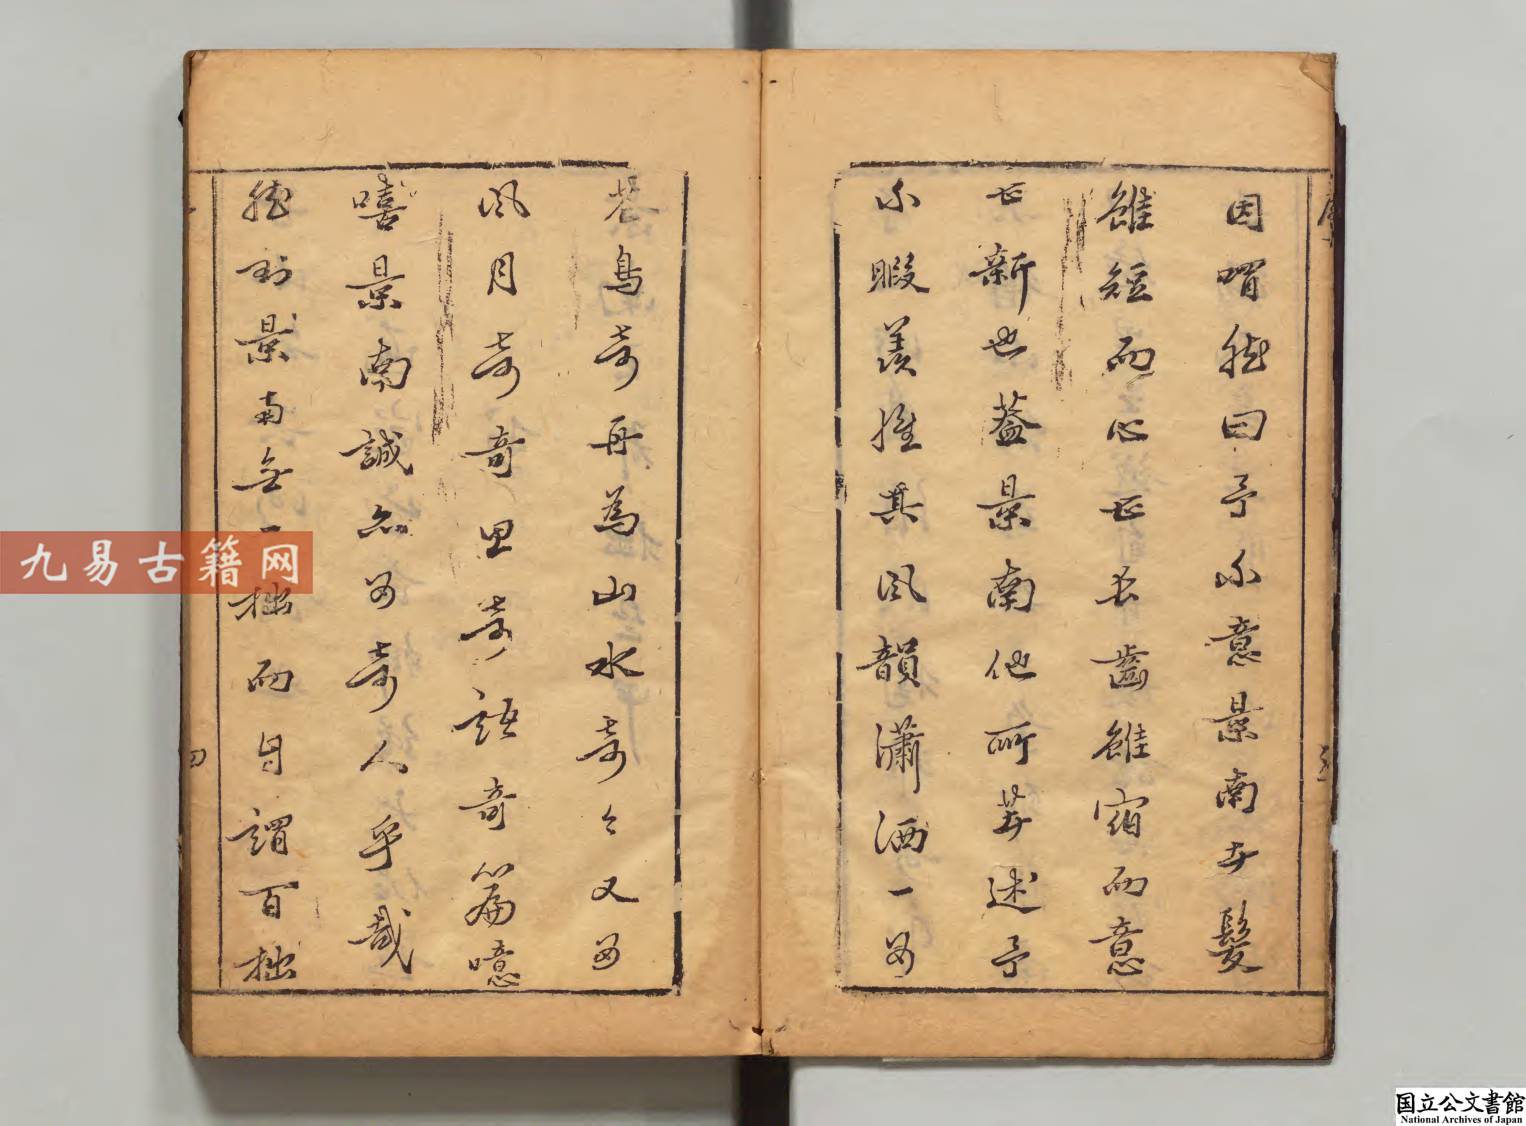 因喟然曰予不意景南之髮
雖短而心甚長齒雖宿而意
甚新也蓋景南他所其述予
不暇羨惟其風韻瀟洒一如
花鳥奇再為山水奇々又如
風月奇奇里奇語奇篇噫
嘻景南誠亦如奇人乎哉
然則景南無一拙而自謂百拙
九易古籍网
国立公文書館
National Archives of Japan